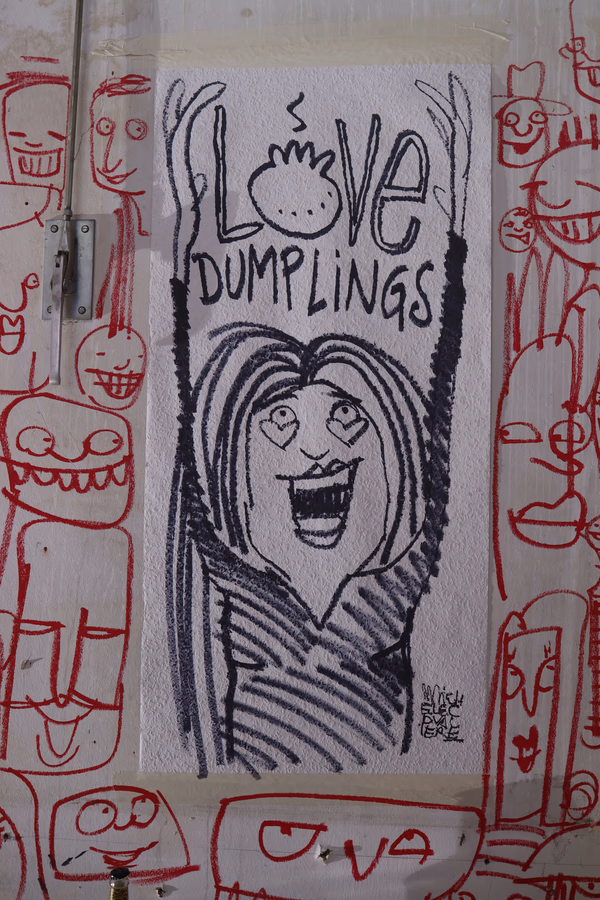 LOVe
DUMPLiNGS